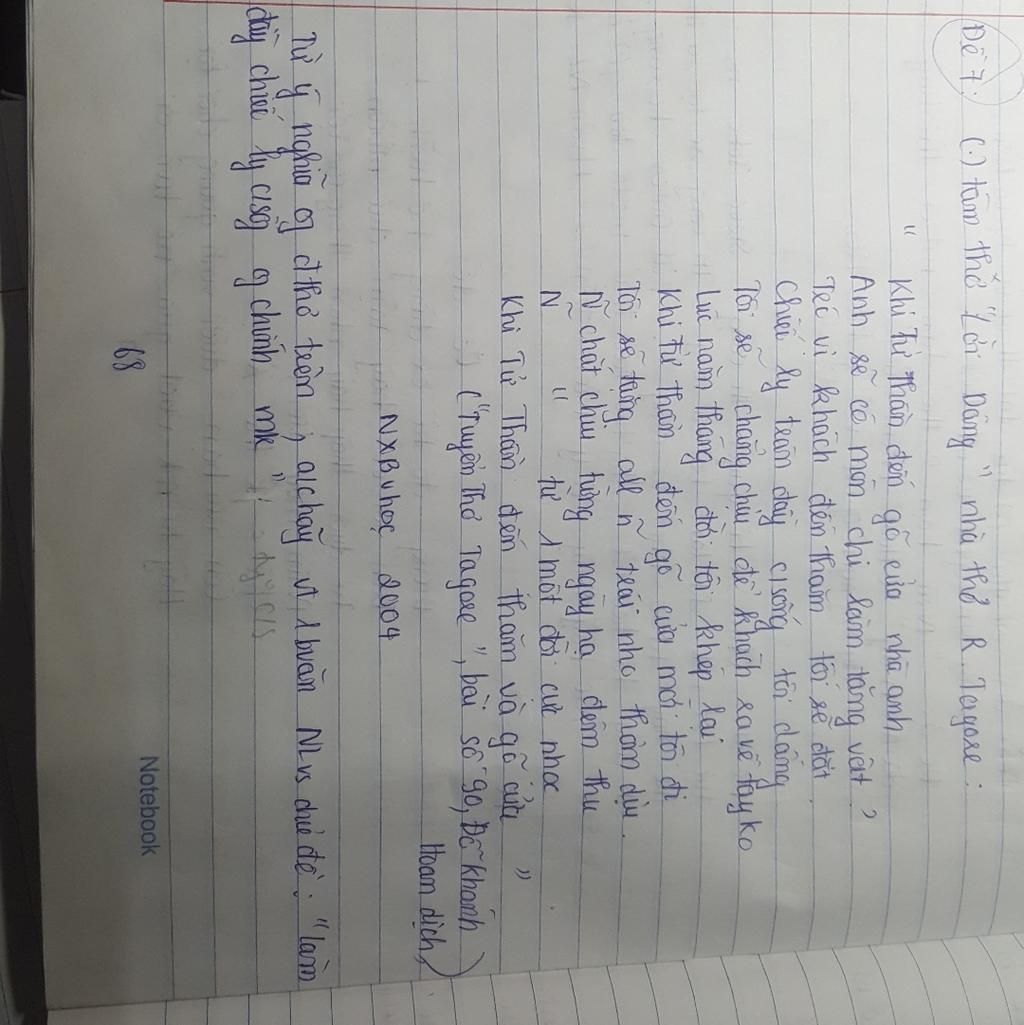 Đề 7: (.) tâm thơ "Lời Dâng" nhà thơ R. Tagore:
" Khi Tử Thần đến gõ cửa nhà anh
Anh sẽ có món chi làm tặng vật ?
Trc vị khách đến thăm tôi sẽ đặt
Chiếc ly tràn đầy c/sống tôi dâng
Tôi sẽ chẳng chịu để khách ra về tay ko
Lúc năm tháng đời tôi khép lại
Khi tử thần đến gõ cửa mời tôi đi
Tôi sẽ tặng all n~ trái nho thơm dịu
N~ chắt chịu từng ngày hạ đêm thu
N~ " từ 1 một đời cực nhọc
Khi Tử Thần đến thăm và gõ cửa "
("Tuyển Thơ Tagore", bài số 90, Đỗ Khánh
Hoan dịch,)
NXB v học 2004
Từ ý nghĩa of đ thơ trên, a/c hãy vt 1 bvăn NLvs chủ đề: "làm
đầy chiếc ly c/sống of chính mk"
68
Notebook